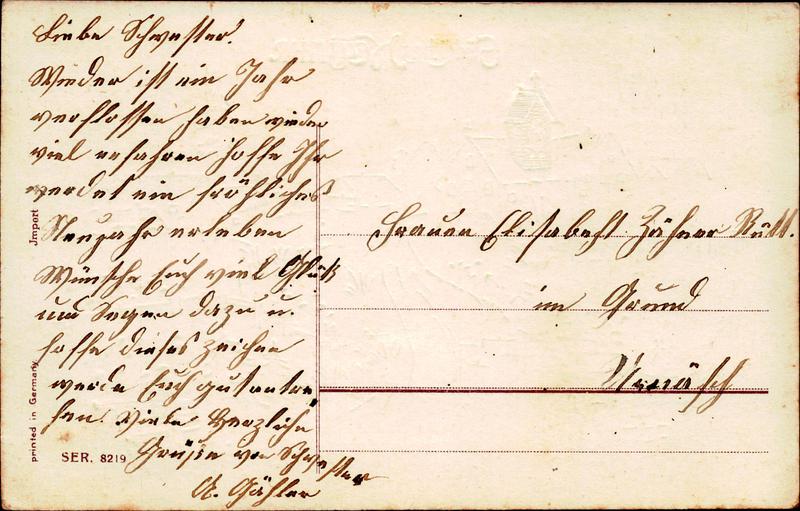 Liebe Schwester!
Wieder ist ein Jahr
verflossen haben wieder
viel erfahren hoffe Ihr
werdet ein fröhliches
Neujahr erleben
Wünsche Euch viel Glük
und Segen dazu u.
hoffe dieses zeichen
werde Euch gut antre
fen. Viele Herzliche
Grüße von Schwester
A. Gähler
Frauen Elisabeth Zähner Rütt.
im Grund
Urnäsch
Jmport
printed in Germany
SER. 8219